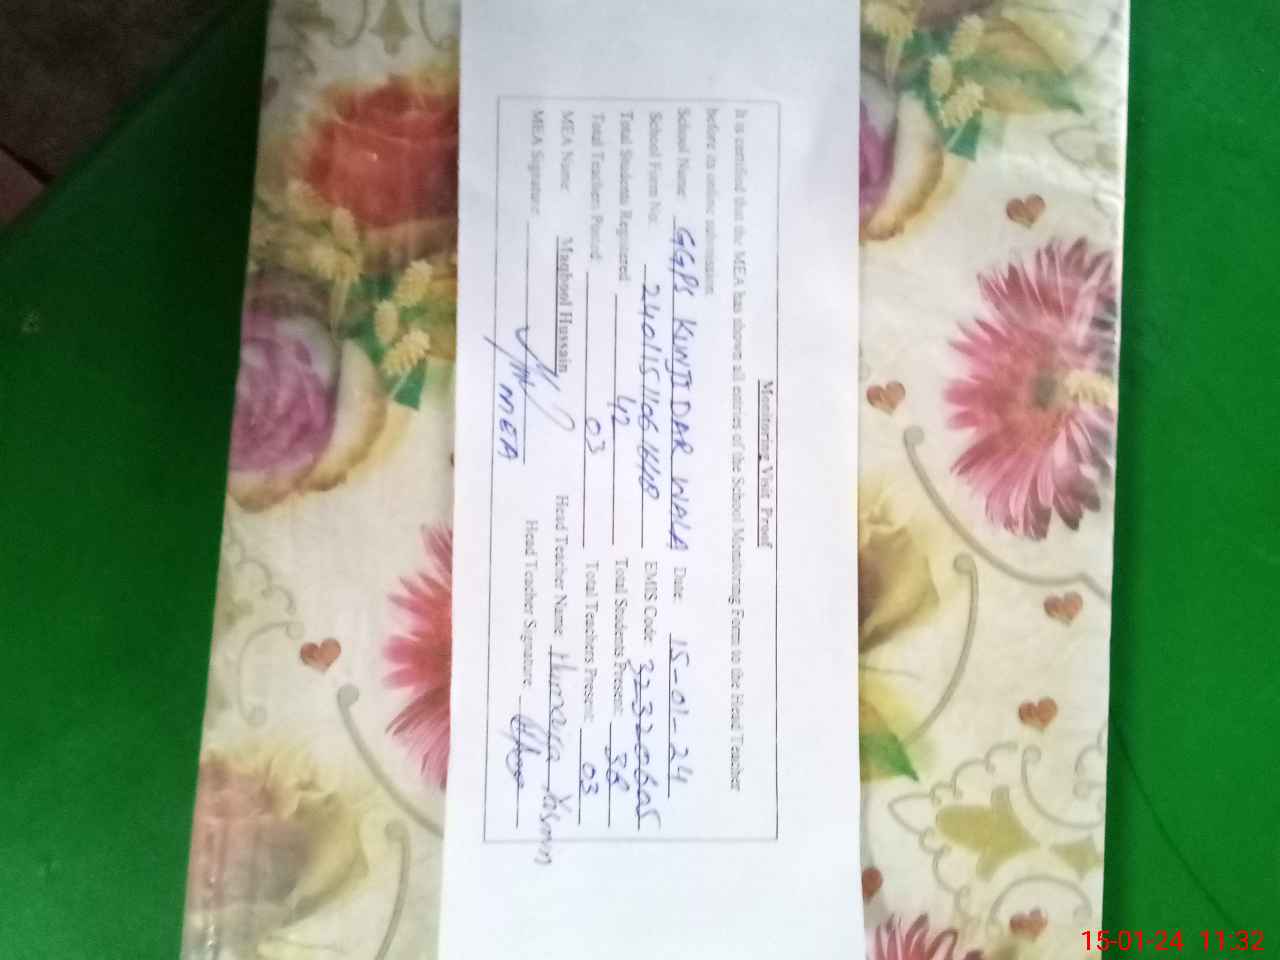 Monitoring Visit Proof
It is certified that the MEA has shown all entries of the School Monitoring Form to the Head Teacher
before its online submission.
School Name: GGPS KUNJI DAR WALA Date: 15-01-24
School Form No: EMIS Code:
Total Students Registered: 42 Total Students Present: 38
Total Teachers Posted: 03 Total Teachers Present: 03
MEA Name: Maqbool Hussain Head Teacher Name: Humaira Yasmin
MEA Signature: MEA Head Teacher Signature:
15-01-24 11:32